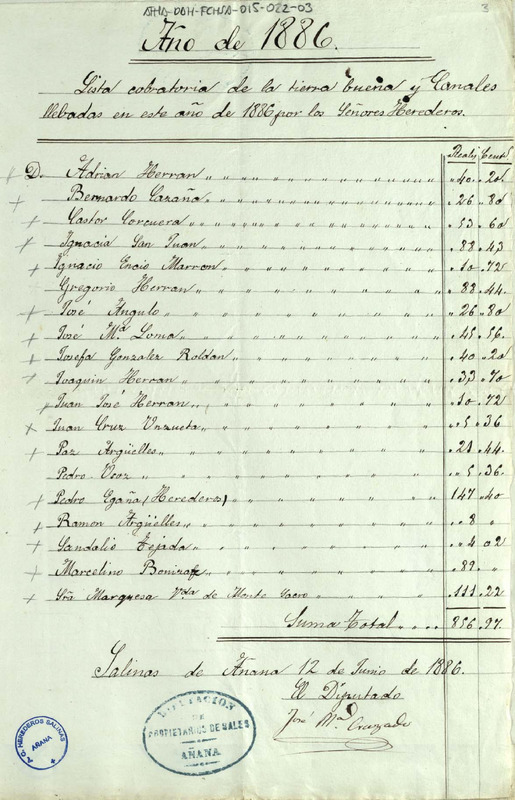 AHA-DDH-FCHSA-015-022-03
3
Año de 1886.
Lista cobratoria de la tierra buena y Canales
llebadas en este año de 1886 por los Señores Herederos.
Reales Cents
D. Adrian Herran 40. 20
Bernardo Cazaña 26. 80
Castor Corcuera 53. 60
Ignacia San Juan 88. 43
Ignacio Encio Marron 10. 72
Gregorio Herran 88. 44
José Angulo 26. 80
José Mª Loma 45. 56
Josefa Gonzalez Roldan 40. 20
Joaquin Herran 33. 70
Juan José Herran 10. 72
Juan Cruz Unzueta 5. 36
Paz Argüelles 21. 44
Pedro 5. 36
Pedro Egaña (Herederos) 147. 40
Ramon Argüelles 8 "
Sandalio Tejada 4. 02
Marcelino 89. "
Sra Marquesa Vda de Monte Sacro 111. 22
Suma Total 856. 97
Salinas de Añana 12 de Junio de 1886.
El Diputado
José Mª Cruzado
DIPUTACION
DE
PROPIETARIOS DE SALES
AÑANA
T. C. HEREDEROS SALINAS
AÑANA